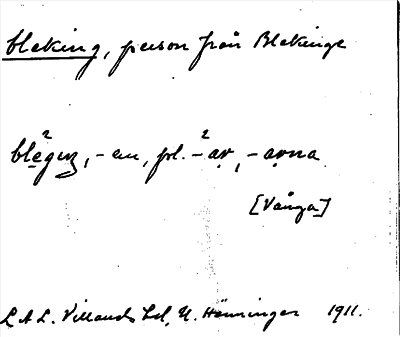 bleking, person från Blekinge
blēgıŋ, -en, pl. -ar, -arna
[Vånga]
L A L. Villands hd, N. Henninger 1911.